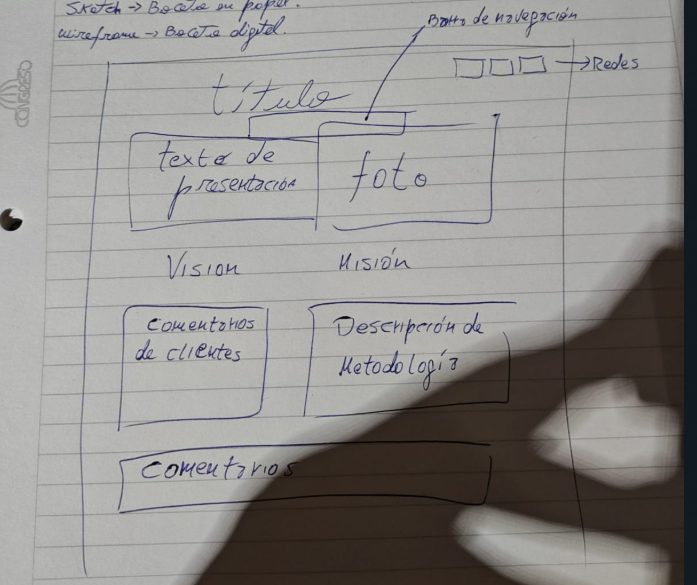 Sketch → Boceto en papel.
wireframe → Boceto digital.
Barra de navegación
Redes
título
texto de
presentación
foto
Vision
Misión
Comentarios
de clientes
Descripción de
Metodología
Comentarios
CONGRESO